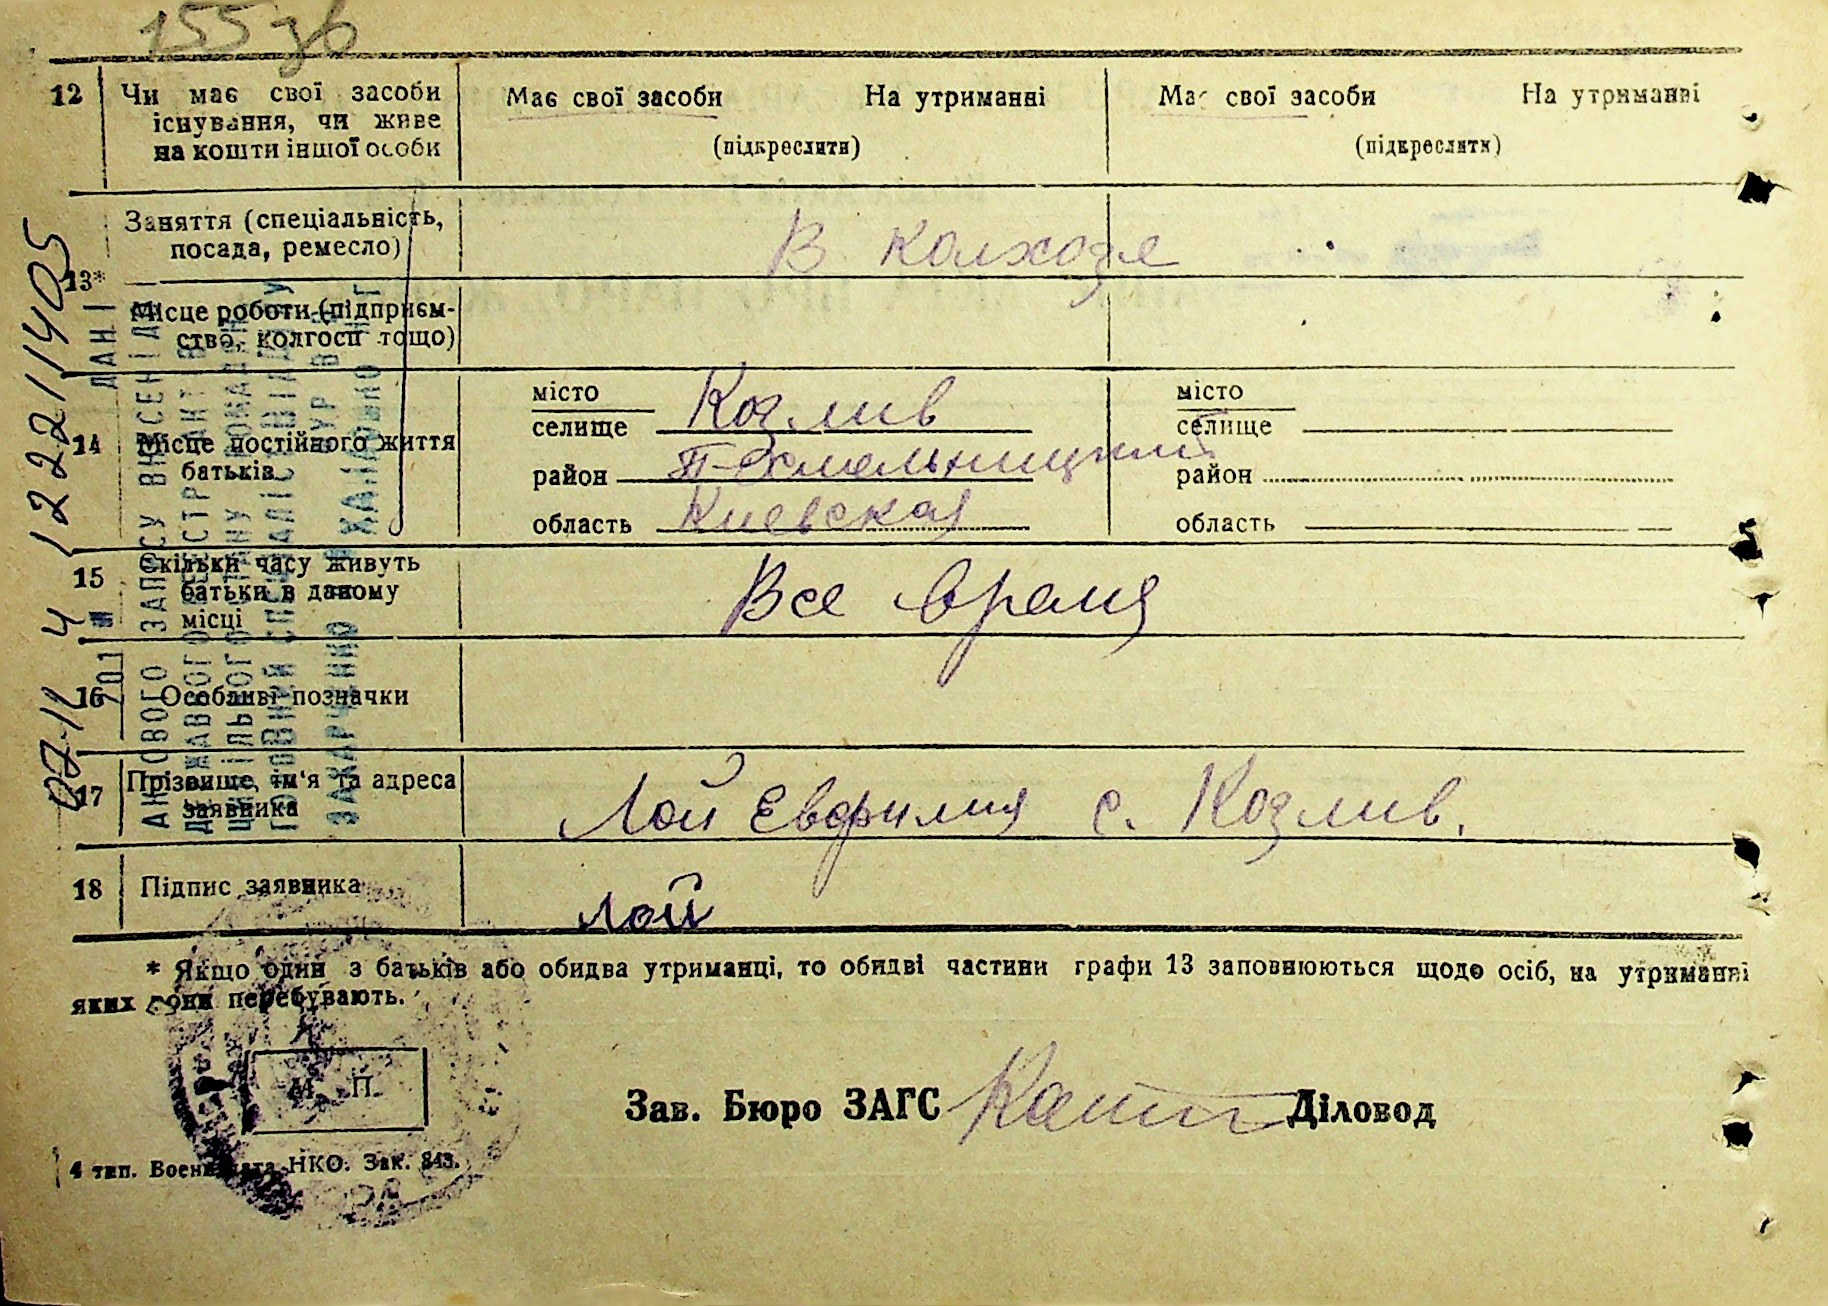 155 зв
12 Чи має свої засоби існування, чи живе на кошти іншої особи
Має свої засоби На утриманні
(підкреслити)
Має свої засоби На утриманні
(підкреслити)
13* Заняття (спеціальність, посада, ремесло)
В колхозе
Місце роботи (підприємство, колгосп тощо)
14 Місце постійного життя батьків
місто
селище Козлив
район П-Хмельницкий
область Киевская
місто
селище
район
область
15 Скільки часу живуть батьки в даному місці
Все время
16 Особливі позначки
17 Прізвище, ім'я та адреса заявника
Лой Евфимия с. Козлив.
18 Підпис заявника
Лой
* Якщо один з батьків або обидва утриманці, то обидві частини графи 13 заповнюються щодо осіб, на утриманні
яких вони перебувають.
М. П.
Зав. Бюро ЗАГС Діловод
4 тип. Воениздата НКО. Зак. 843.
ДАНІ
АКТОВОГО ЗАПИСУ ВНЕСЕНІ ДО
ДЕРЖАВНОГО РЕЄСТРУ АКТІВ
ЦИВІЛЬНОГО СТАНУ ГРОМАДЯН
ГОЛОВНИЙ СПЕЦІАЛІСТ
ЗАХАРЧЕНКО